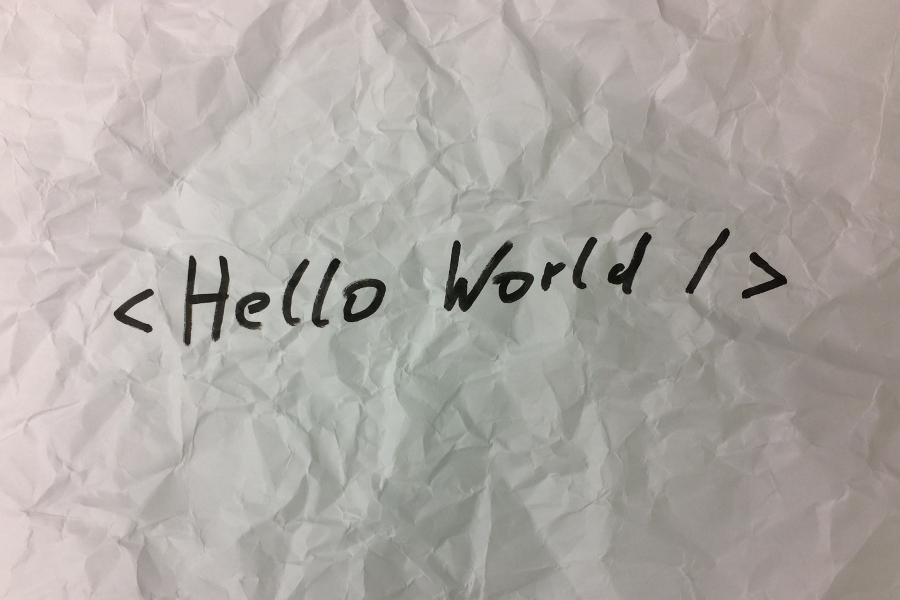 <Hello World />